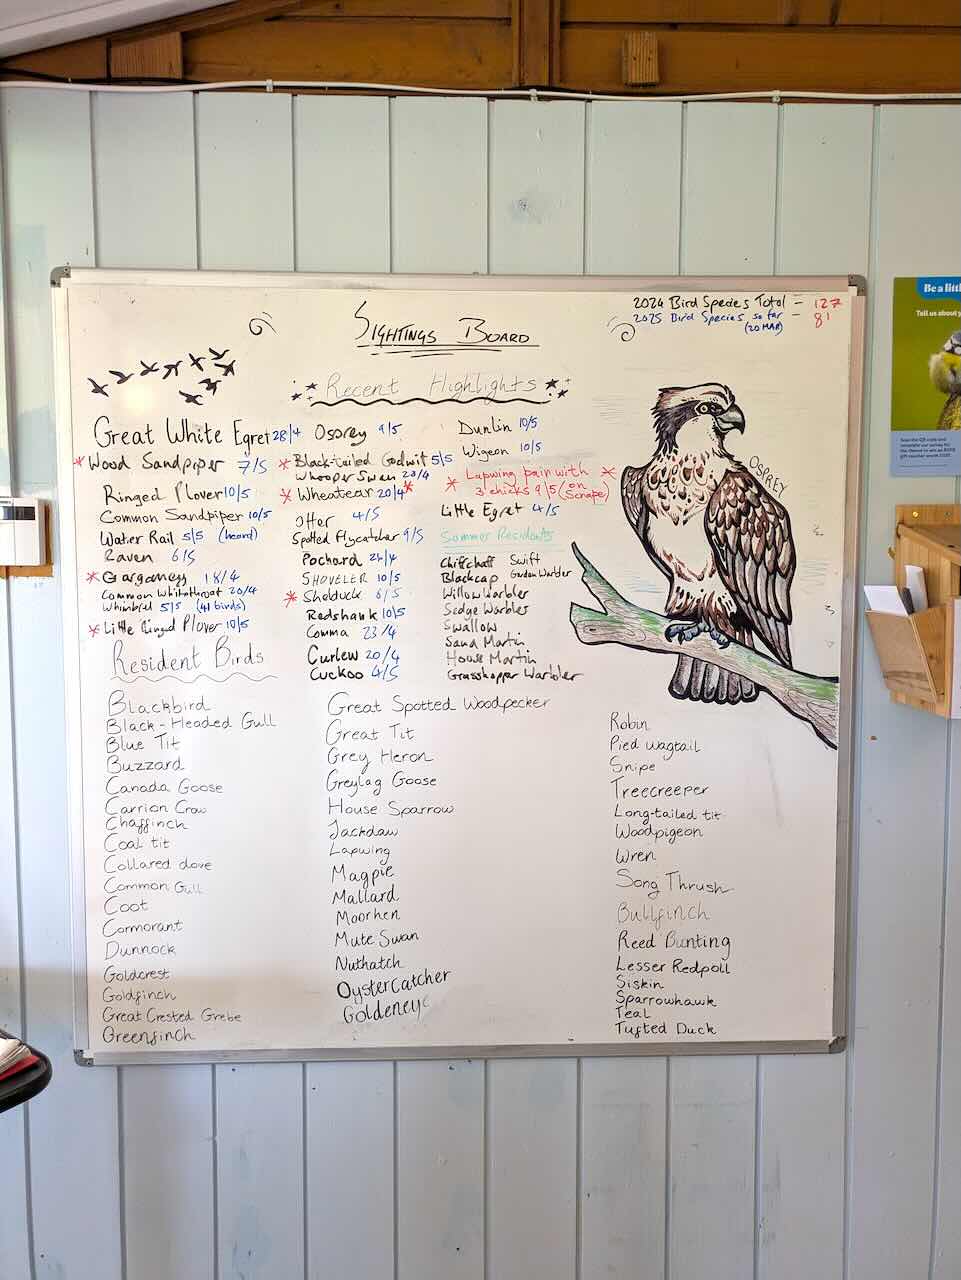 2024 Bird Species Total - 127
2025 Bird Species so far - 81
(20 MAR)
Sightings Board
Recent Highlights
Great White Egret 28/4
* Wood Sandpiper 7/5
Ringed Plover 10/5
Common Sandpiper 10/5
Water Rail 5/5 (heard)
Raven 6/5
* Garganey 18/4
Common Whitethroat 20/4
Whimbrel 5/5 (41 birds)
* Little Ringed Plover 10/5
Osprey 9/5
* Black-tailed Godwit 5/5
Whooper Swan 20/4
* Wheatear 20/4 *
Otter 4/5
Spotted Flycatcher 9/5
Pochard 26/4
SHOVELER 10/5
* Shelduck 6/5
Redshank 10/5
Comma 23/4
Curlew 20/4
Cuckoo 4/5
Dunlin 10/5
Wigeon 10/5
* Lapwing pair with *
3 chicks 9/5 (on Scrape)
Little Egret 4/5
Summer Residents
Chiffchaff Swift
Blackcap Garden Warbler
Willow Warbler
Sedge Warbler
Swallow
Sand Martin
House Martin
Grasshopper Warbler
OSPREY
Resident Birds
Blackbird
Black-Headed Gull
Blue Tit
Buzzard
Canada Goose
Carrion Crow
Chaffinch
Coal tit
Collared dove
Common Gull
Coot
Cormorant
Dunnock
Goldcrest
Goldfinch
Great Crested Grebe
Greenfinch
Great Spotted Woodpecker
Great Tit
Grey Heron
Greylag Goose
House Sparrow
Jackdaw
Lapwing
Magpie
Mallard
Moorhen
Mute Swan
Nuthatch
Oystercatcher
Goldeneye
Robin
Pied wagtail
Snipe
Treecreeper
Long-tailed tit
Woodpigeon
Wren
Song Thrush
Bullfinch
Reed Bunting
Lesser Redpoll
Siskin
Sparrowhawk
Teal
Tufted Duck
Be a littl
Tell us about y